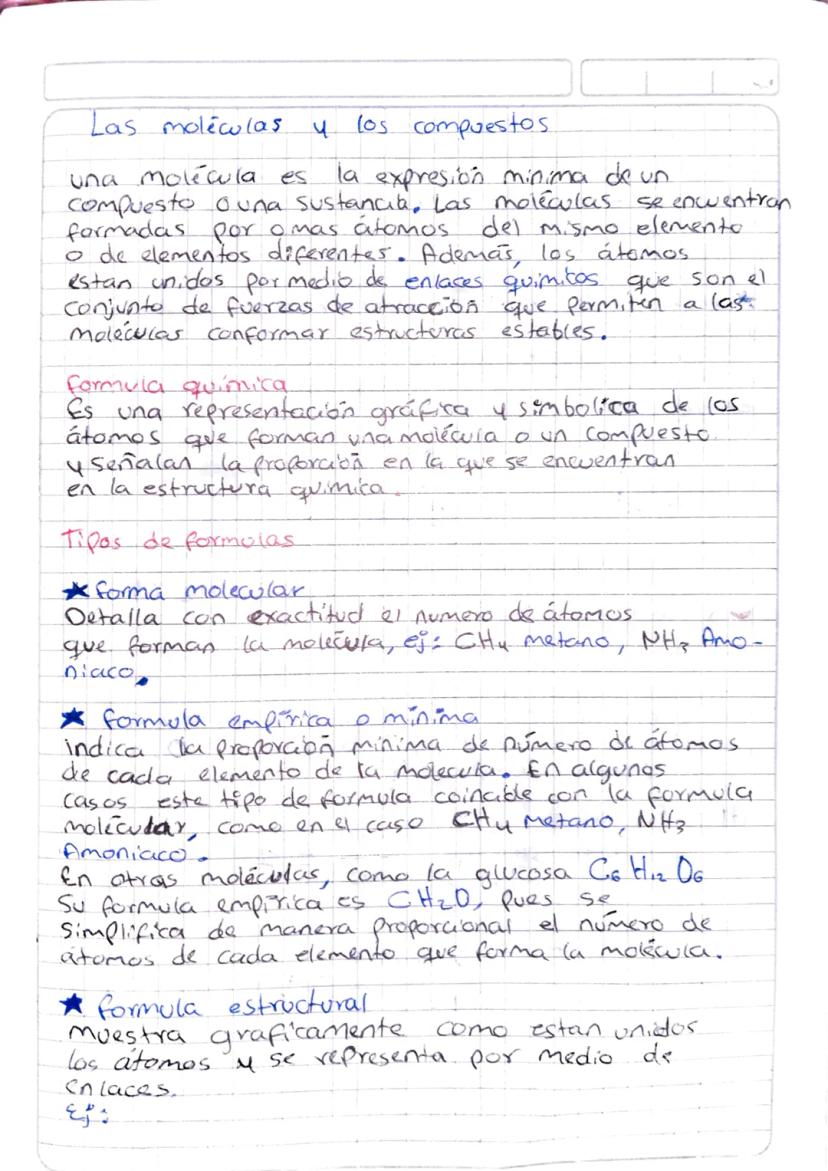 Las moléculas y los compuestos
una molécula es la expresión mínima de un
compuesto o una sustancia. Las moléculas se encuentran
formadas por o mas átomos del mismo elemento
o de elementos diferentes. Además, los átomos
estan unidos por medio de enlaces químicos que son el
conjunto de fuerzas de atracción que permiten a las
moléculas conformar estructuras estables.
formula química
Es una representación gráfica y simbolica de los
átomos que forman una molécula o un compuesto
y señalan la proporción en la que se encuentran
en la estructura química.
Tipos de formulas
★ forma molecular
Detalla con exactitud el numero de átomos
que forman la molécula, ej: CH₄ metano, NH₃ Amo-
niaco.
★ formula empírica o mínima
indica la proporción mínima de número de átomos
de cada elemento de la molecula. En algunos
casos este tipo de formula coincible con la formula
molécular, como en el caso CH₄ metano, NH₃
Amoniaco.
En otras moléculas, como la glucosa C₆ H₁₂ O₆
Su formula empírica es CH₂O, pues se
simplifica de manera proporcional el número de
átomos de cada elemento que forma la molécula.
★ formula estructural
muestra graficamente como estan unidos
los átomos y se representa por medio de
enlaces.
Ej: